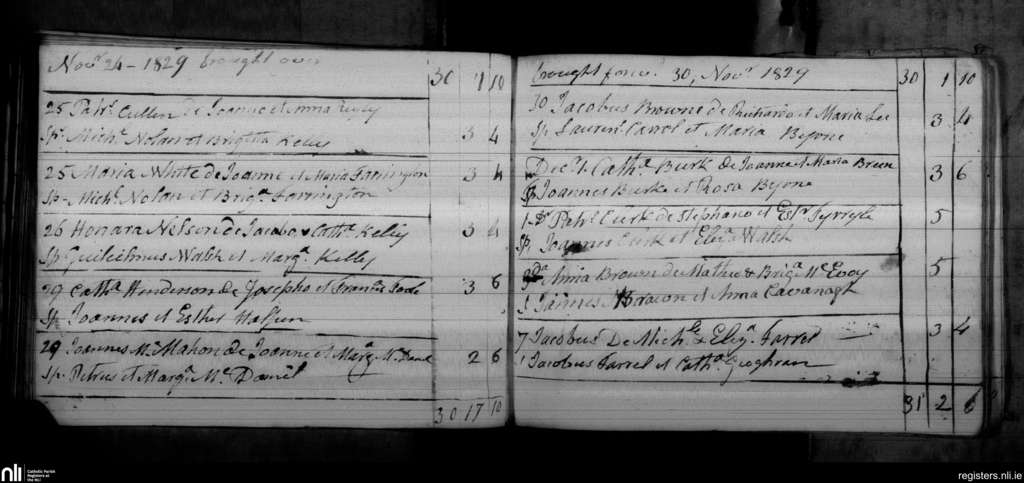 Novr 24 - 1829 brought over 30 1 10
25 Patk. Cullen de Joanne et Anna
Sp. Michl. Nolan et Brigitta Kelly 3 4
25 Maria White de Joanne et Maria Farrington 3 4
Sp. Michl. Nolan et Briga. Farrington
26 Honara Nelson de Jacobo & Catha. Kelly 3 4
Sp. Guilielmus Walsh et Marga. Kelly
29 Catha. Henderson de Josepho et Francis 3 6
Sp. Joannes et Esther
29 Joannes McMahon de Joanne et Marga. Mc 2 6
Sp. Petrus et Marga. Mc Daniel
30 17 10
brought forw. 30, Novr 1829 30 1 10
30 Jacobus Browne de Richardo et Maria Lee 3 4
Sp. Laurent. Carrol et Maria Byrne
Decr. 1. Catha. Burk de Joanne et Maria Breen 3 6
Sp Joannes Burke et Rosa Byrne
1 Patk. de Stephano et 5
Sp. Joannes et Eliza Walsh
Anna Brown de Matheo & Briga. McEvoy 5
S James Brown et Anna Cavanagh
7 Jacobus De Michl. & Eliza. Farrel 3 4
Jacobus Farrel et Catha. Geoghran
31 2 6
nli
Catholic Parish
Registers at
the NLI
registers.nli.ie